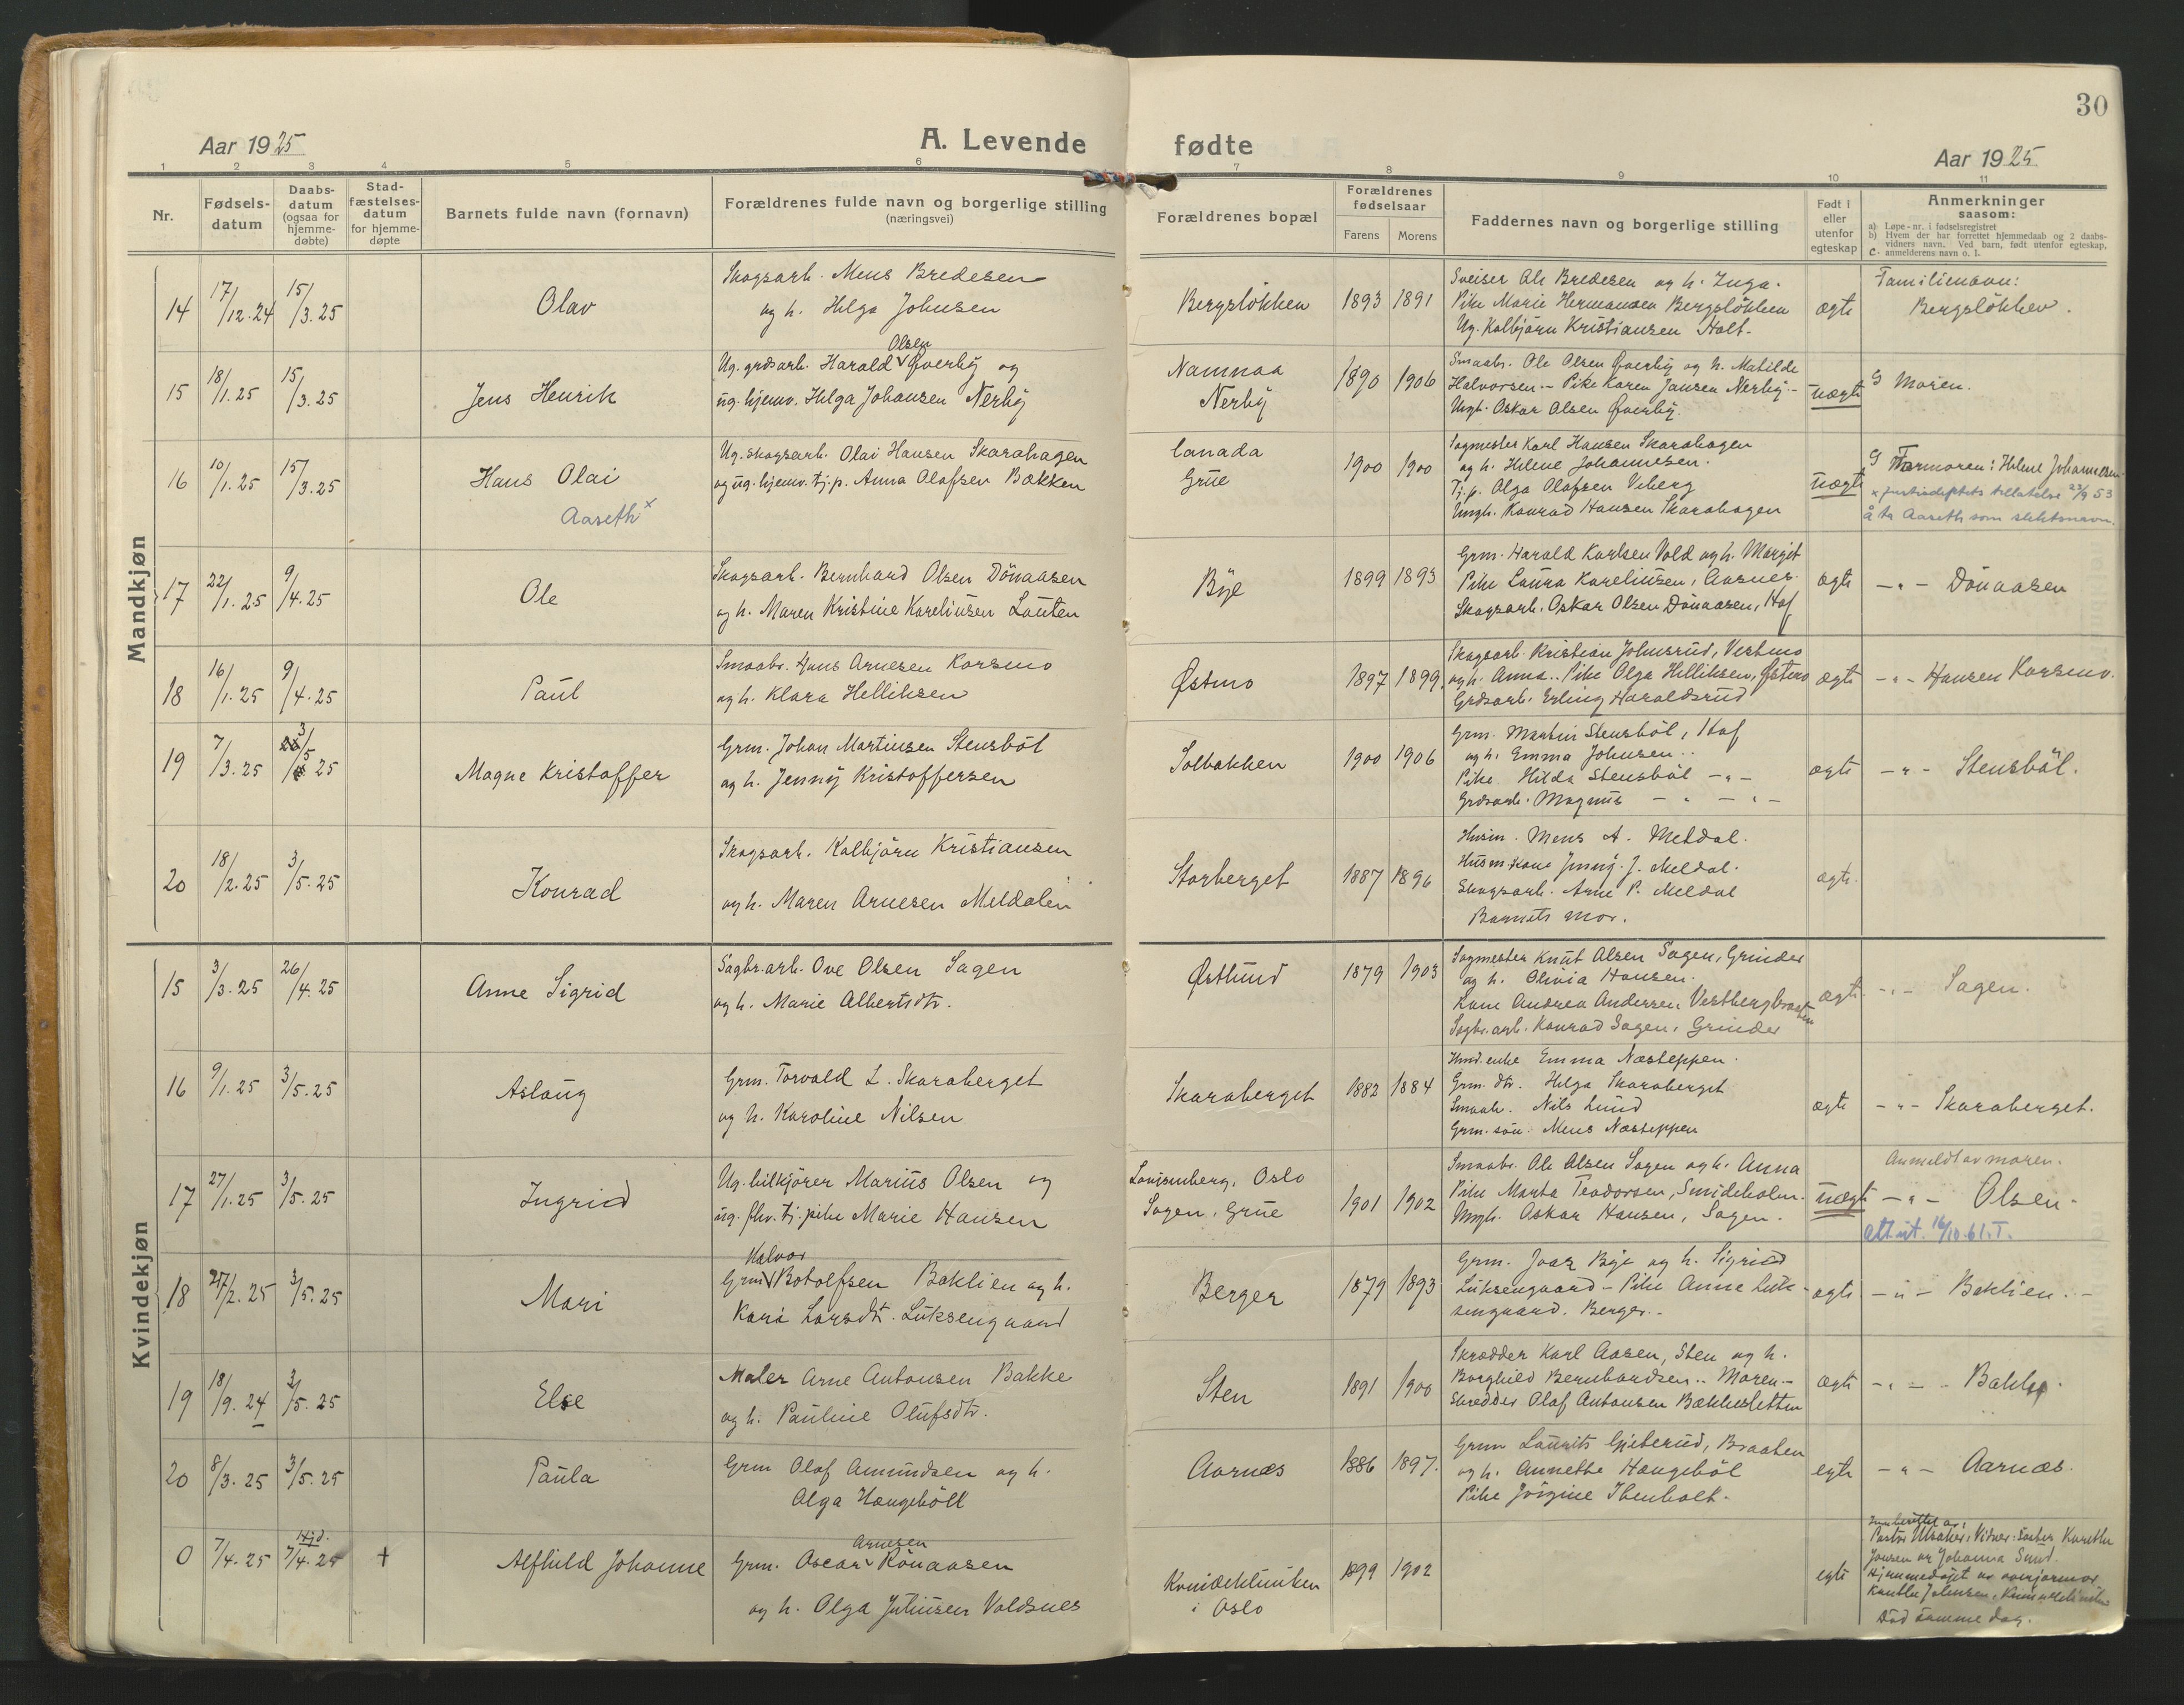 30
Aar 1925
A. Levende fødte
Aar 1925
1 2 3 4 5 6 7 8 9 10 11
Nr.
Fødsels-
datum
Daabs-
datum
(ogsaa for
hjemme-
døbte)
Stad-
fæstelses-
datum
for hjemme-
døpte
Barnets fulde navn (fornavn)
Forældrenes fulde navn og borgerlige stilling
(næringsvei)
Forældrenes bopæl
Forældrenes
fødselsaar
Farens Morens
Faddernes navn og borgerlige stilling
Født i
eller
utenfor
egteskap
Anmerkninger
saasom:
a) Løpe-nr. i fødselsregistret
b) Hvem der har forrettet hjemmedaab og 2 daabs-
vidners navn. Ved barn, født utenfor egteskap,
c- anmelderens navn o. l.
Mandkjøn
14 17/12.24 15/3.25 Olav
Skogsarb. Mens Bredesen
og h. Helga Johnsen
Bergsløkken 1893 1891
Sveiser Ole Bredesen og h. Inga.
Pike Marie Hermansen Bergsløkken
Ug. Kolbjørn Kristiansen Holt.
ægte
Familienavn:
Bergsløkken.
15 18/1.25 15/3.25 Jens Henrik
Olsen
Ug. grdsarb. Harald Øverby og
ug. hjemv. Helga Johansen Nerby
Namnaa
Nerby
1890 1906
Smaabr. Ole Olsen Øverby og h. Matilde
Halvorsen.- Pike Karen Jansen Nerby.-
Ungk. Oskar Olsen Øverby.
uægte
G Moren.
16 10/1.25 15/3.25 Hans Olai
Aaseth x
Ug. skogsarb. Olai Hansen Skarahagen
og ug. hjemv. tj.p. Anna Olafsen Bækken
Canada
Grue
1900 1900
Sagmester Karl Hansen Skarahagen
og h. Helene Johannesen.
Tj.p. Olga Olafsen Viberg
Ungk. Konrad Hansen Skarahagen
uægte
G Farmoren: Helene Johannesen.
x justisdeptets tillatelse 23/9 53
å ta Aaseth som slektsnavn.
17 22/1.25 9/4.25 Ole
Skogsarb. Bernhard Olsen Dönaasen
og h. Maren Kristine Kareliusen Lauten
Bye 1899 1893
Grm. Harald Karlsen Vold og h. Margit
Pike Laura Kareliusen, Aasnes.
Skogsarb. Oskar Olsen Dönaasen, Hof
ægte
-"- Dönaasen
18 16/1.25 9/4.25 Paul
Smaabr. Hans Arnesen Korsmo
og h. Klara Helliksen
Østmo 1897 1899
Skogsarb. Kristian Johnsrud, Vestmo
og h. Anna.. Pike Olga Helliksen, Østmo
Grdsarb. Erling Haraldsrud
ægte
-"- Hansen Korsmo.
19 7/3.25 3/5 25 Magne Kristoffer
Grm. Johan Martinsen Stensböl
og h. Jenny Kristoffersen
Solbakken 1900 1906
Grm. Martin Stensböl, Hof
og h. Emma Johnsen..
Pike Hilda Stensböl -"-
Grdsarb. Magnus - " - " -
ægte
-"- Stensböl.
20 18/2.25 3/5.25 Konrad
Skogsarb. Kolbjörn Kristiansen
og h. Maren Arnesen Meldalen
Storberget 1887 1896
Husm. Mens A. Meldal.
Husm.kone Jenny J. Meldal.
Skogsarb. Arne P. Meldal
Barnets mor.
ægte.
Kvindekjøn
15 3/3.25 26/4.25 Anne Sigrid
Sagbr.arb. Ove Olsen Sagen
og h. Marie Albertsdtr.
Østlund 1879 1903
Sagmester Knut Olsen Sagen, Grinder
og h. Olivia Hansen.
Kone Andrea Andersen Vestbergbraaten
Sagbr.arb. Konrad Sagen, Grinder
ægte
-"- Sagen.
16 9/1.25 3/5.25 Aslaug
Grm. Torvald L. Skaraberget
og h. Karoline Nilsen
Skaraberget 1882 1884
Emma Næsteppen.
Grm.dtr. Helga Skaraberget
Smaabr. Nils Lund
Grm.sön. Mens Næsteppen
ægte
-"- Skaraberget.
17 27/1.25 3/5.25 Ingrid
Ug. bilkjörer Marius Olsen og
ug. fhv. tj.pike Marie Hansen
Lovisenberg, Oslo
Sagen, Grue
1901 1902
Smaabr. Ole Olsen Sagen og h. Anna
Pike Marta Teodorsen, Smideholm.
Ungk. Oskar Hansen, Sagen.
uægte
Anmeldt av moren.
-"- Olsen-
Att. ut. 16/10.61. T.
18 27/2.25 3/5.25 Mari
Halvor
Grm. Botolfsen Baklien og h.
Kari Larsdtr. Luksengaard
Berger 1879 1893
Grm. Joar Bye og h. Sigrid
Luksengaard - Pike Anne Luk-
sengaard. Berger.-
ægte
-"- Baklien.-
19 18/9.24 3/5.25 Else
Maler Arne Antonsen Bakke
og h. Pauline Olufsdtr.
Sten 1891 1900
Skrædder Karl Aasen, Sten og h.
Borghild Bernhardsen.. Moren.-
Skredder Olaf Antonsen Bækkesletten
ægte
-"- Bakke.
20 8/3.25 3/5.25 Paula
Grm Olaf Amundsen og h.
Olga Haugeböll
Aarnæs 1886 1897.
Grm Laurits Gjeterud, Braaten
og h. Annette Haugeböl
Pike Jörgine Ibenholt.
egte
-"- Aarnæs.
0 7/4.25 Hjd. 7/4.25 + Alfhild Johanne
Arnesen
Grm. Oscar Rönaasen
og h. Olga Juliusen Voldsnes
Kvindeklinikken
i Oslo
1899 1902
egte
Innberettet av:
Pastor Vidner: Søster Karethe
Jonsen og Johanna Sund.
Hjemmedöpt av overjormor
Död samme dag.